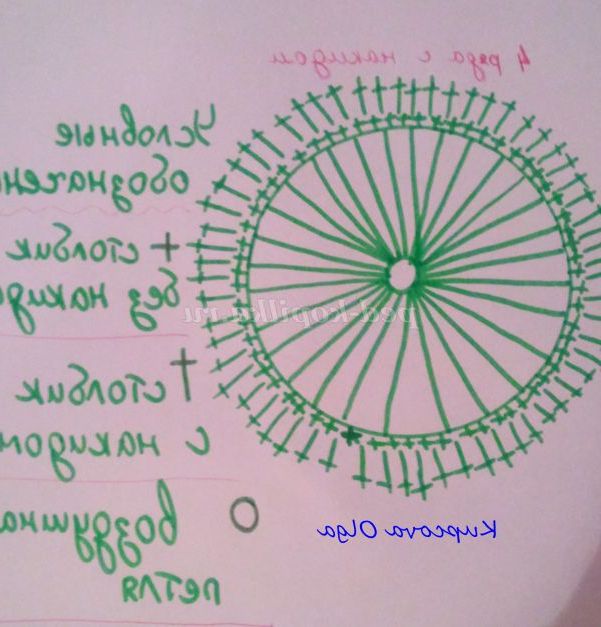 4 ряда с накидом
Условные
обозначен
+ столбик
без накид
† столбик
с накидом
воздушна
петля
ped-kopilka.ru
Kupcova Olga